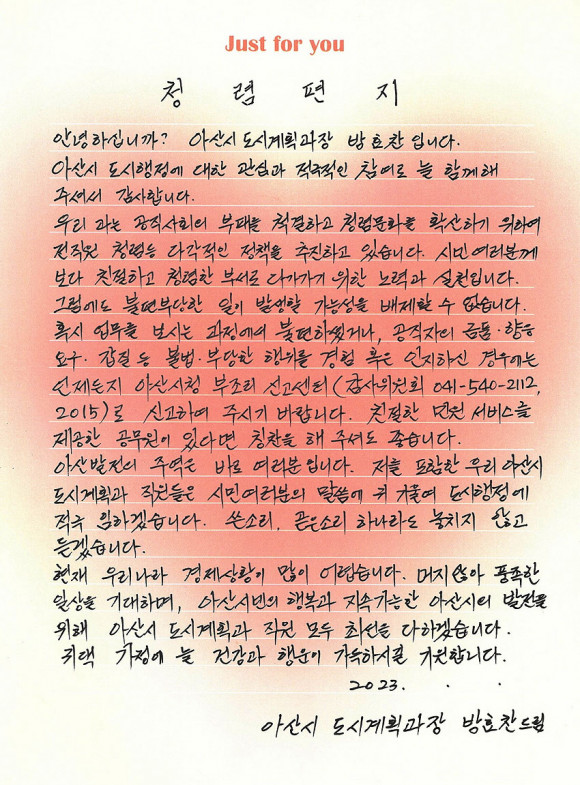 Just for you
청 렴 편 지
안녕하십니까? 아산시 도시계획과장 방효찬입니다.
아산시 도시행정에 대한 관심과 적극적인 참여로 늘 함께해
주셔서 감사합니다.
우리 과는 공직사회의 부패를 척결하고 청렴문화를 확산하기 위하여
전직원 청렴등 다각적인 정책을 추진하고 있습니다. 시민여러분께
보다 친절하고 청렴한 부서로 다가가기 위한 노력과 실천입니다.
그럼에도 불편부당한 일이 발생할 가능성을 배제할 수 없습니다.
혹시 업무를 보시는 과정에서 불편하셨거나, 공직자의 금품·향응
요구·갑질 등 불법·부당한 행위를 경험 혹은 인지하신 경우에는
언제든지 아산시청 부조리 신고센터(감사위원회 041-540-2112,
2015)로 신고하여 주시기 바랍니다. 친절한 민원 서비스를
제공한 공무원이 있다면 칭찬을 해 주셔도 좋습니다.
아산발전의 주역은 바로 여러분입니다. 저를 포함한 우리 아산시
도시계획과 직원들은 시민여러분의 말씀에 귀 기울여 도시행정에
적극 임하겠습니다. 쓴소리, 곧은소리 하나라도 놓치지 않고
듣겠습니다.
현재 우리나라 경제상황이 많이 어렵습니다. 머지않아 풍족한
일상을 기대하며, 아산시민의 행복과 지속가능한 아산시의 발전을
위해 아산시 도시계획과 직원 모두 최선을 다하겠습니다.
귀댁 가정에 늘 건강과 행운이 가득하시길 기원합니다.
2023. . .
아산시 도시계획과장 방효찬드림